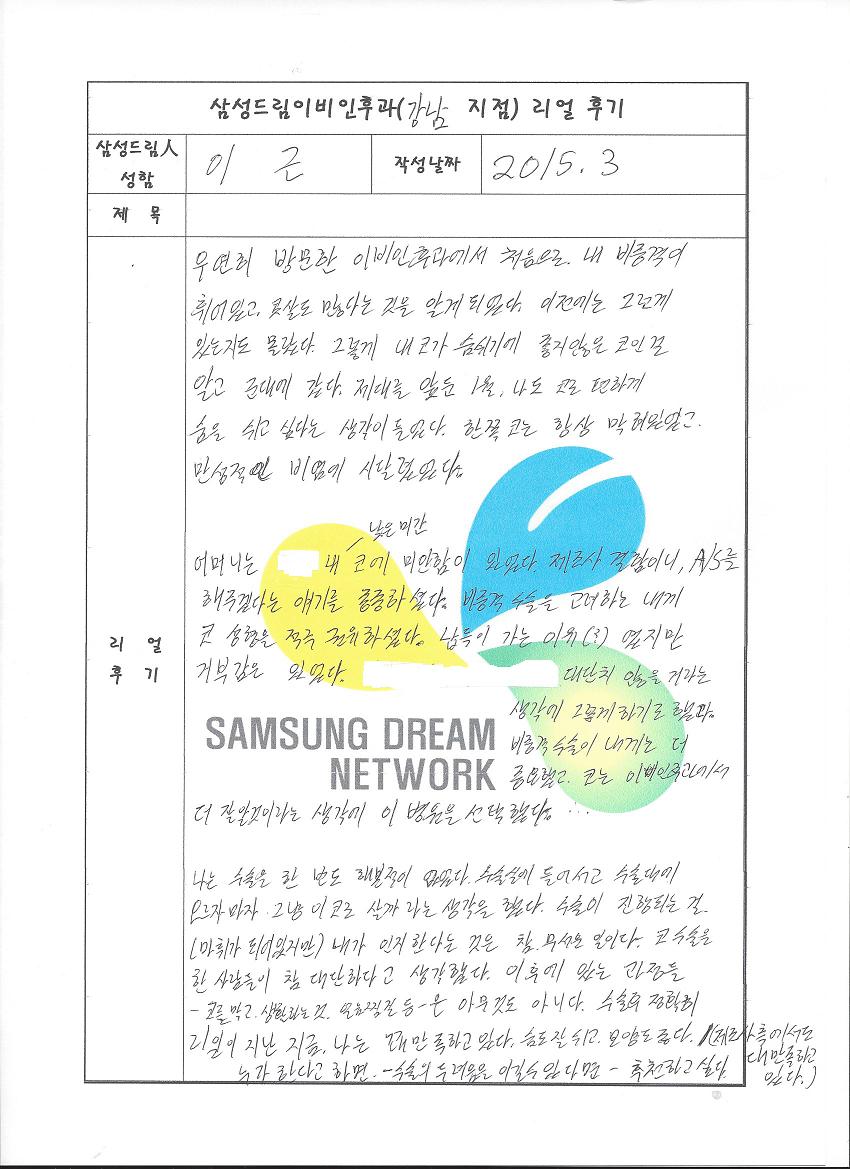 삼성드림이비인후과(강남 지점) 리얼 후기
삼성드림人 성함
이 근
작성날짜
2015. 3
제 목
리 얼 후 기
우연히 방문한 이비인후과에서 처음으로. 내 비중격이
휘어있고, 콧살도 많다는 것을 알게 되었다. 이전에는 그런게
있는지도 몰랐다. 그렇게 내 코가 숨쉬기에 좋지않은 코인걸
알고 군대에 갔다. 제대를 앞둔 1월, 나도 코로 편하게
숨을 쉬고 싶다는 생각이 들었다. 한쪽 코는 항상 막혀있었고.
만성적인 비염에 시달렸었다.
낮은 미간
어머니는 내 코에 미안함이 있었다. 제조사 결함이니, A/S를
해주겠다는 얘기를 종종하셨다. 비중격 수술을 고려하는 내게
코 성형을 적극 권유하셨다. 납득이 가는 이유(?) 였지만
거부감은 있었다. 대단치 않을 거라는
생각에 그렇게 하기로 했다.
SAMSUNG DREAM
NETWORK
비중격수술이 내게는 더
중요했고. 코는 이비인후과에서
더 잘알것이라는 생각에 이 병원을 선택했다. ...
나는 수술을 한 번도 해본적이 없었다. 수술실에 들어서고 수술대에
오르자마자 그냥 이 코로 살까 라는 생각을 했다. 수술이 진행되는 걸
(마취가 되어있지만) 내가 인지한다는 것은 참 무서운 일이다. 코수술을
한 사람들이 참 대단하다고 생각했다. 이후에 있는 과정들
- 코를 막고 생활하는 것. 등 - 은 아무것도 아니다. 수술후 정확히
리일이 지난 지금, 나는 만족하고 있다. 숨도 잘 쉬고. 모양도 좋다. (제조사 측에서도
대만족하고
있다.)
누가 한다고 하면. - 수술의 두려움을 이길수 있다면 - 추천하고 싶다.